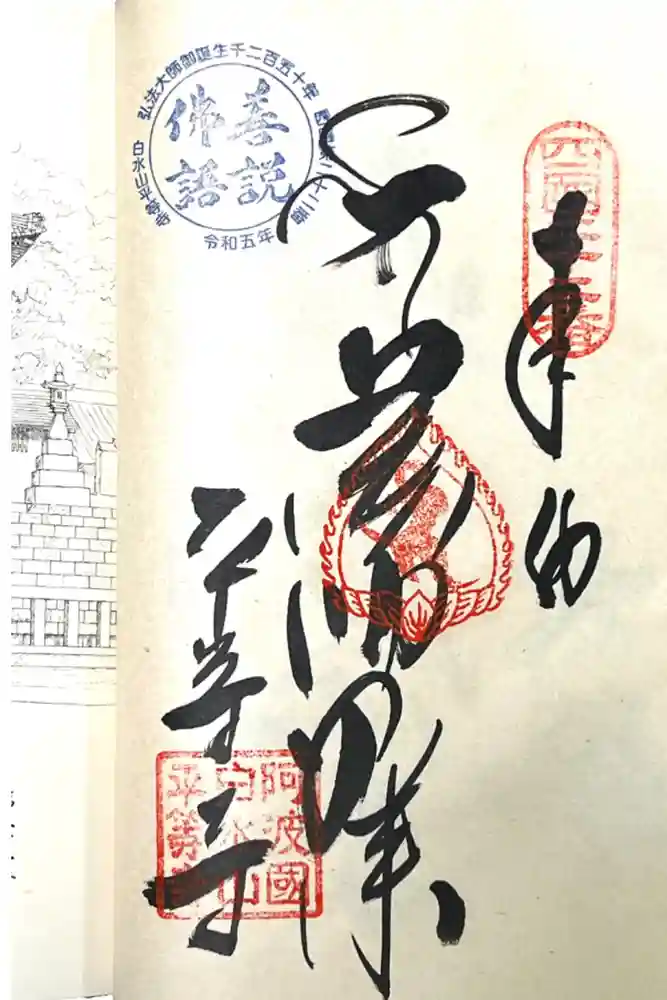 奉納
四國二十二番
薬師如来
平等寺
弘法大師御誕生千二百五十年
白水山平等寺
令和五年
善説
佛語
阿波國
白水山
平等寺